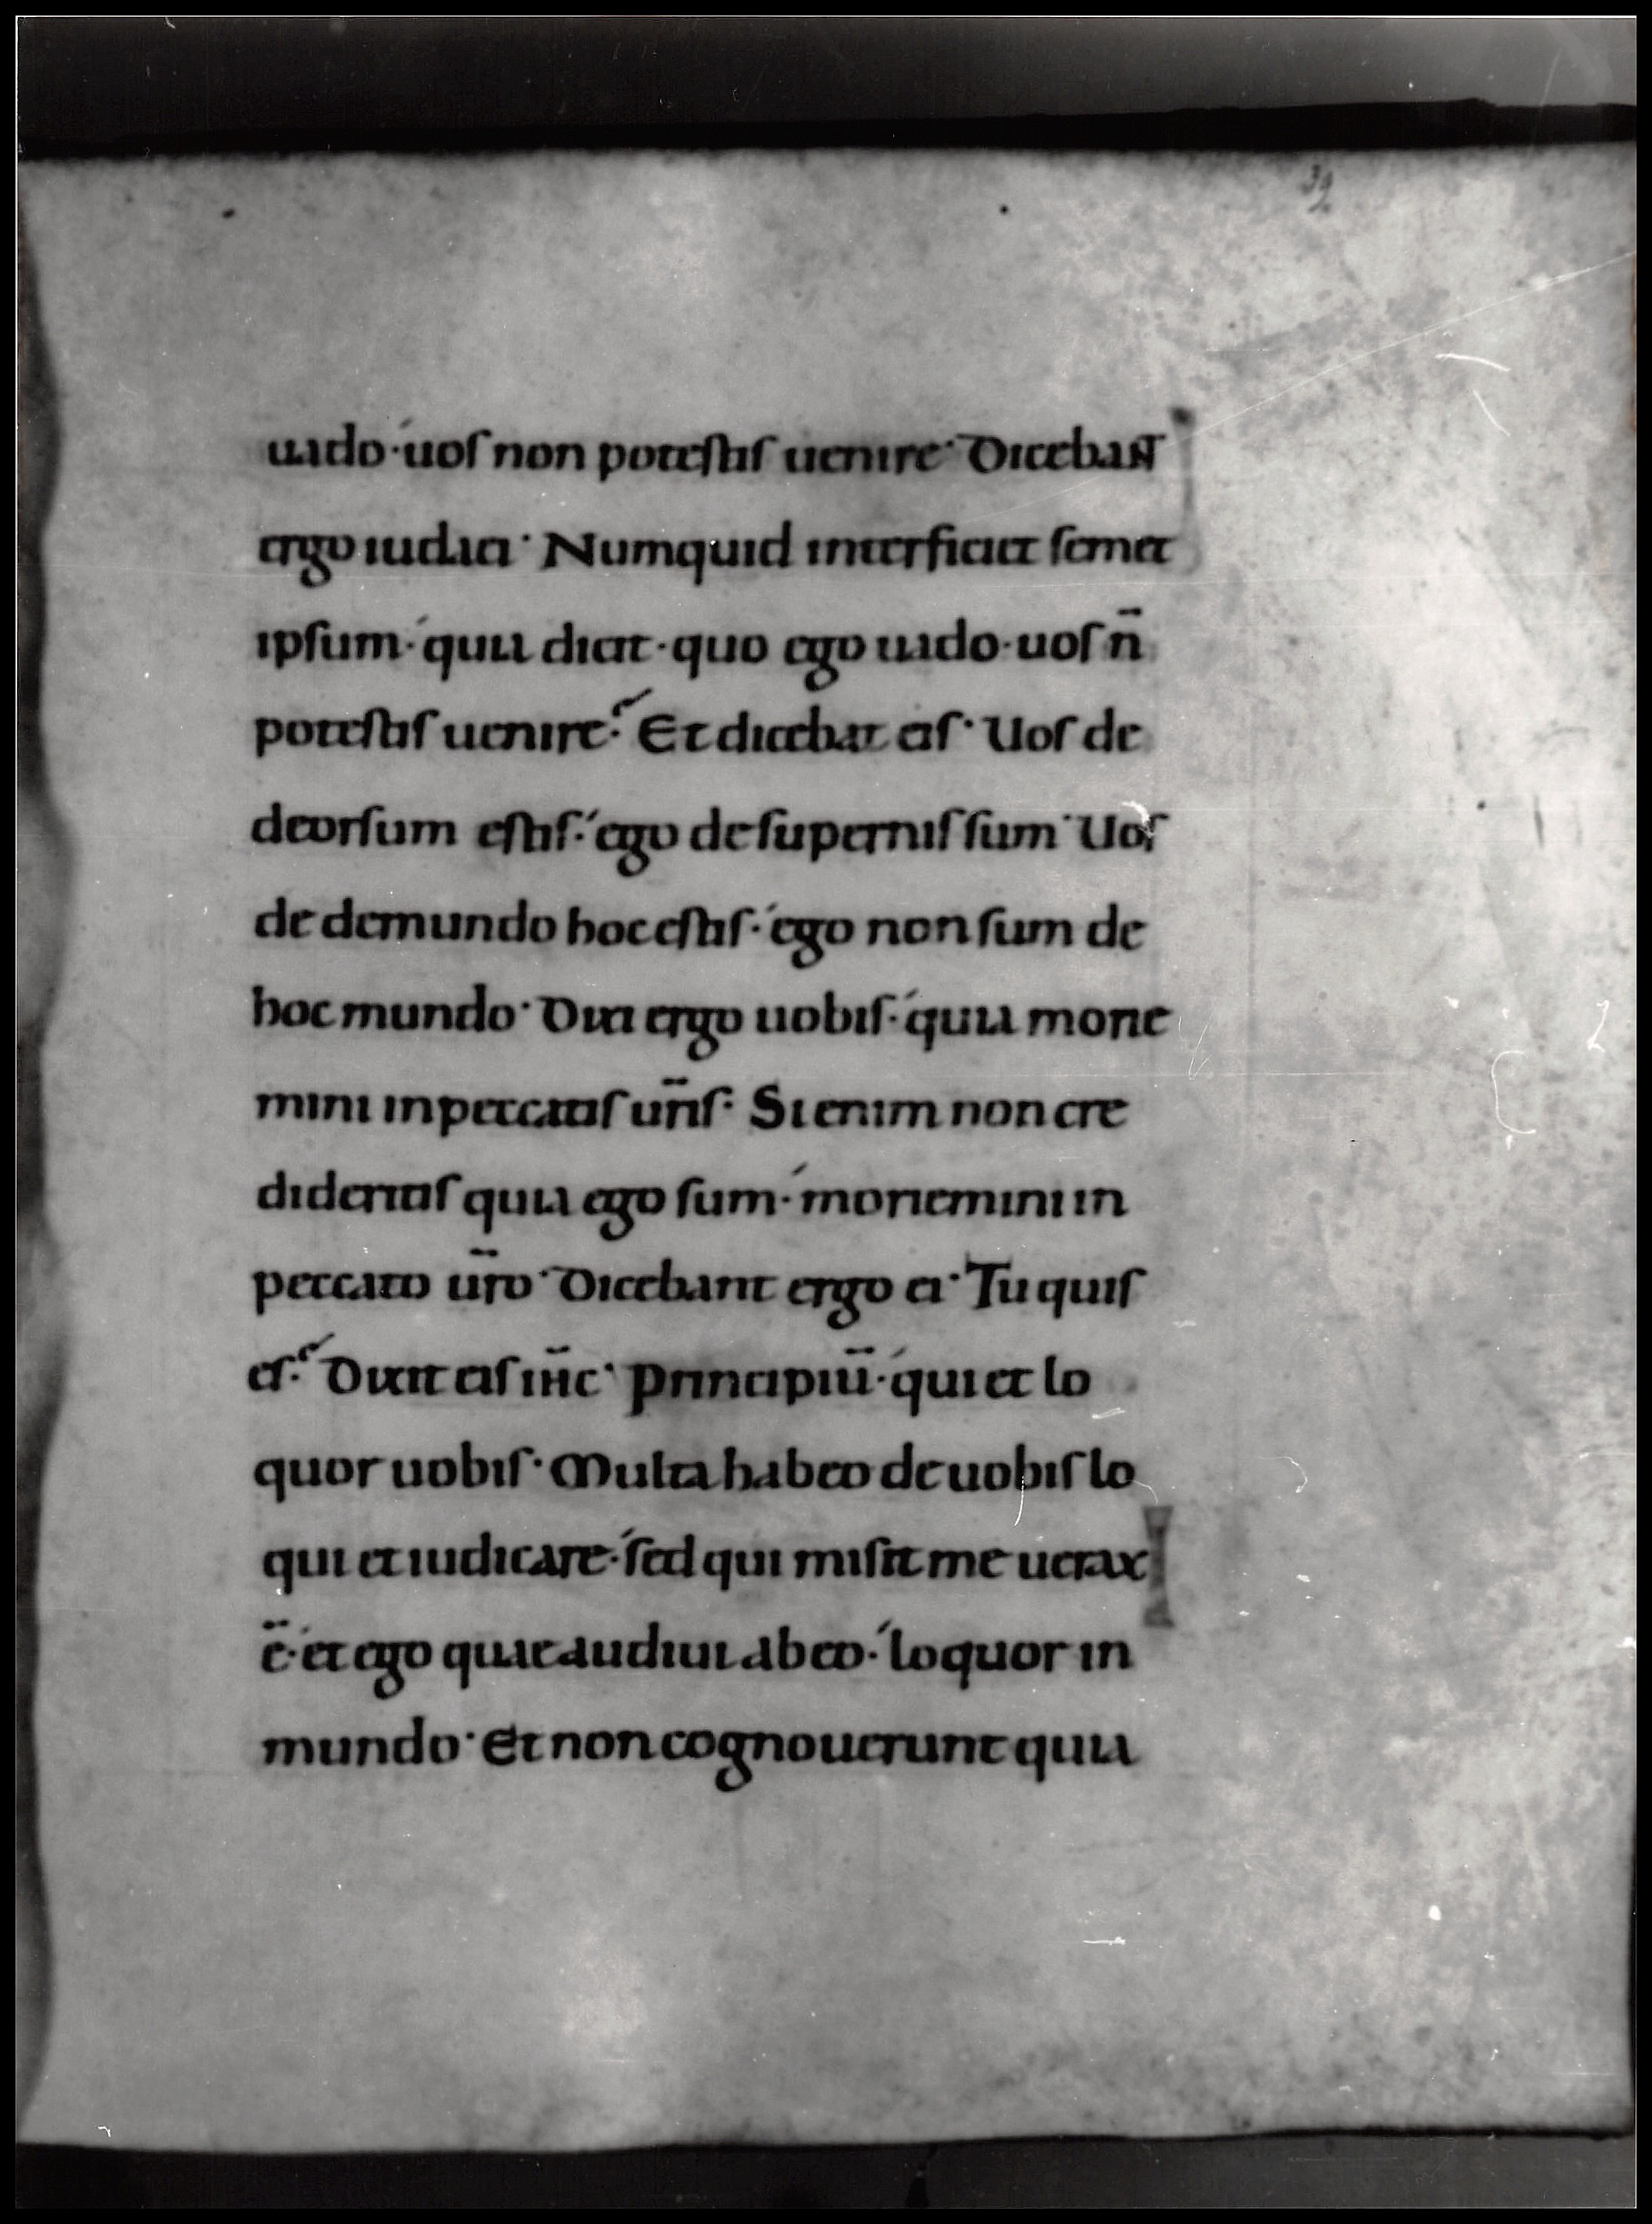 39
uado· uos non potestis uenire· Dicebant
ergo iudaei· Numquid interficiet semet
ipsum· quia dicit· quo ego uado· uos n̄
potestis uenire· Et dicebat eis· Uos de
deorsum estis· ego de supernis sum· Uos
de demundo hoc estis· ego non sum de
hoc mundo· Dixi ergo uobis· quia morie
mini in peccatis ur̄is· Si enim non cre
dideritis quia ego sum· moriemini in
peccato ur̄o· Dicebant ergo ei· Tu quis
es· Dixit eis ih̄c· Principiū· qui et lo
quor uobis· Multa habeo de uobis lo
qui et iudicare· sed qui misit me uerax
ē· et ego quae audiui ab eo· loquor in
mundo· Et non cognouerunt quia